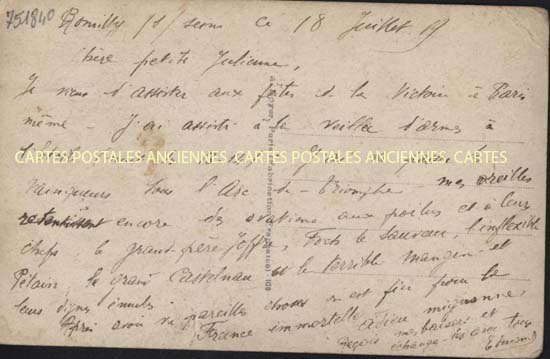 751840
Romilly s/ seine ce 18 Juillet 19
Chère petite Julienne,
Je viens d'assister aux fêtes de la Victoire à Paris
même - J'ai assisté à la veillée d'armes à
CARTES POSTALES ANCIENNES CARTES POSTALES ANCIENNES CARTES POSTALES ANCIENNES
vainqueurs sous l'Arc de Triomphe mes oreilles
retentissent encore des ovations aux poilus et à leurs
chefs le grand père Joffre, Foch le Sauveur, l'inflexible
Pétain, le grand Castelnau et le terrible Mangin et
leurs dignes émules
Après avoir vu pareilles choses on est fier pour la
France immortelle Adieu mignonne
reçois mes baisers et
échange-les avec tous
Edmond